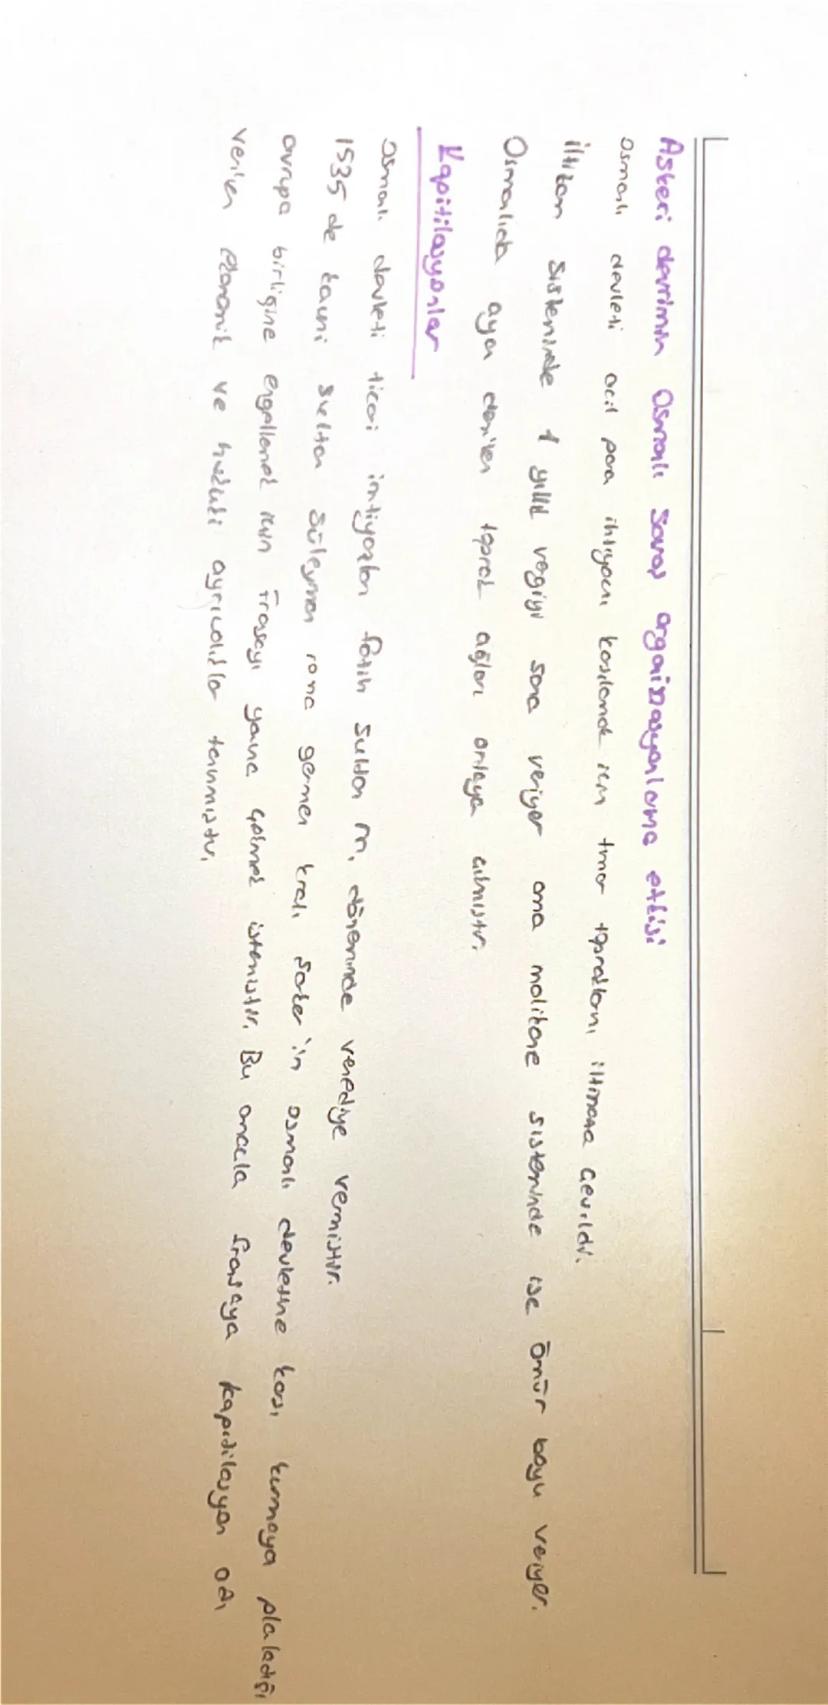 Askeri devrimin Osmalı savaş orgainzasyonlarna etkisi
Osmalı devleti acil para ihtiyacı kaşılamak icin tımar topraklarını iltimana çevildi.
iltizam sisteminde 1 yıllık vergiyi sana veriyor ama malikane sisteminde ise ömür boyu veriyor.
Osmalıda ayan denilen toprak ağları ortaya cıkmıstır.
Kapitilasyonlar
Osmalı devleti ticari imtiyazları fatih sultan M. döneminde venediye vermiştir.
1535 de kauni sultan süleyman roma germen kralı şarken'in osmalı devletine kaşı kurmaya plaladığı
avrupa birligine engellemek icin fransayı yanına çekmek istemistir. Bu amacla fransaya kapitilasyon adı
verilen ekonomik ve hukuki ayrıcalıklar tanımıstır.